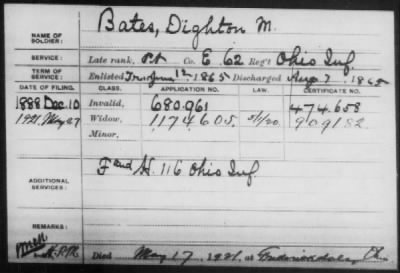 NAME OF SOLDIER: Bates, Dighton M.
SERVICE: Late rank, Pvt Co. E. 62 Reg't Ohio Inf.
TERM OF SERVICE: Enlisted June 12 1865 Discharged Aug 7, 1865
DATE OF FILING. CLASS. APPLICATION NO. LAW. CERTIFICATE NO.
1888 Dec. 10 Invalid, 680.961 474.658
1921. May 27 Widow, 1174605. 5/1/20. 909182.
Minor,
ADDITIONAL SERVICES: F and H. 116 Ohio Inf.
REMARKS:
Died May 17, 1921, at